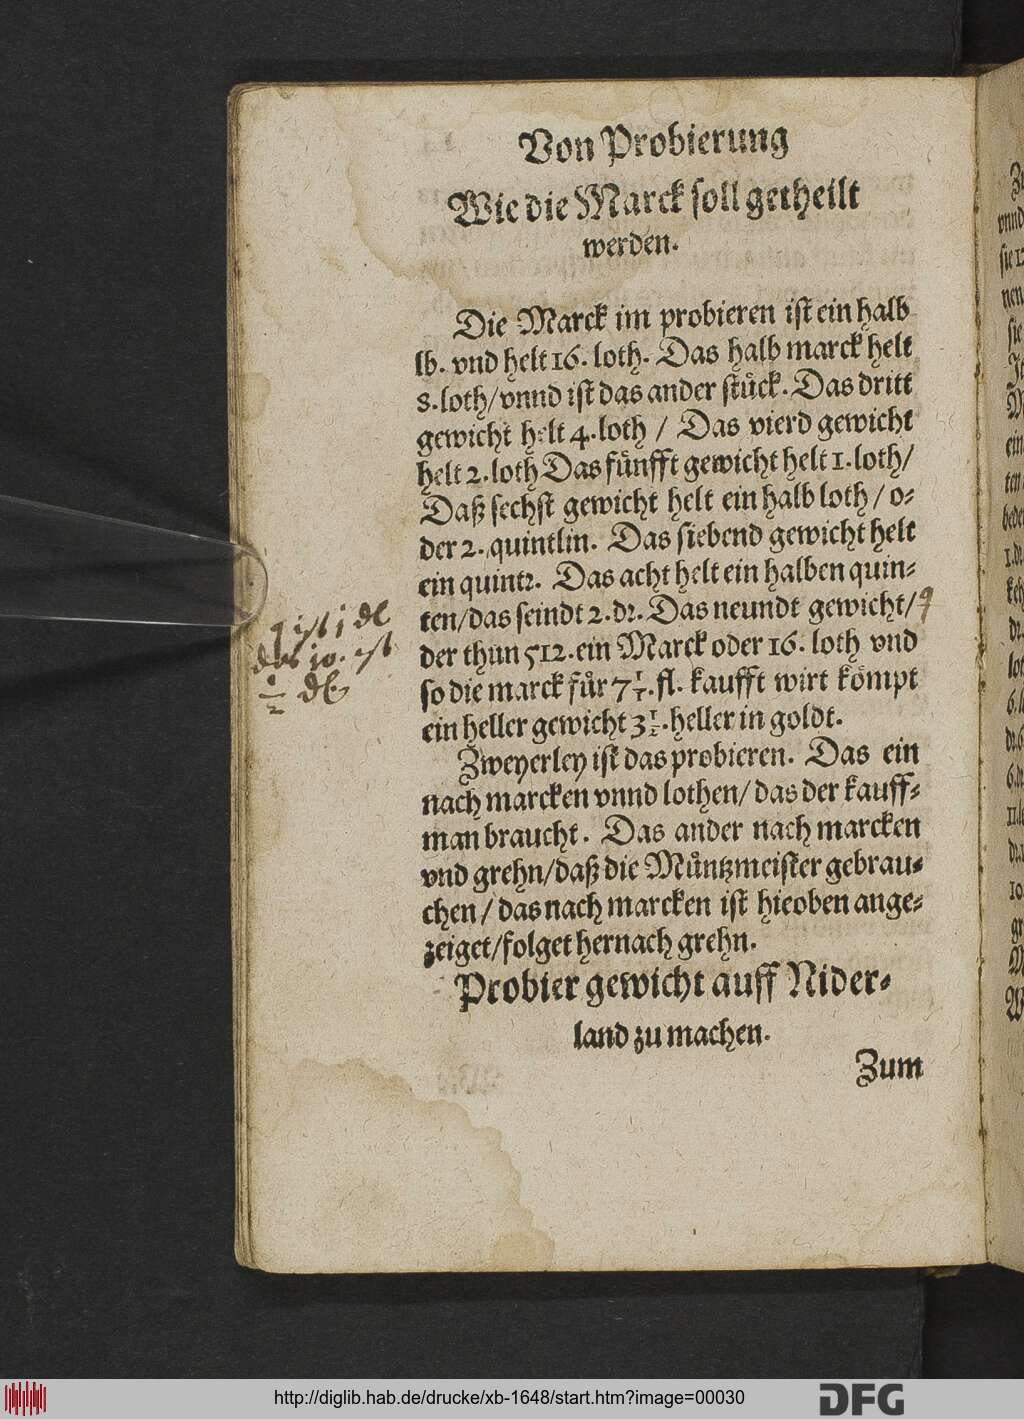 Von Probierung
Wie die Marck soll getheilt
werden.
Die Marck im probieren ist ein halb
lb. vnd helt 16. loth. Das halb marck helt
8. loth/ vnnd ist das ander stuͤck. Das dritt
gewicht helt 4. loth / Das vierd gewicht
helt 2. loth Das fuͤnfft gewicht helt 1. loth/
Daß sechst gewicht helt ein halb loth / o⸗
der 2. quintlin. Das siebend gewicht helt
ein quintꝛ. Das acht helt ein halben quin⸗
ten/ das seindt 2. dꝛ. Das neundt gewicht/ 9
der thun 512. ein Marck oder 16. loth vnd
so die marck fuͤr 7 . fl. kaufft wirt koͤmpt
ein heller gewicht 3 1/2. heller in goldt.
Zweyerley ist das probieren. Das ein
nach marcken vnnd lothen/ das der kauff⸗
man braucht. Das ander nach marcken
vnd grehn/ daß die Muͤntzmeister gebrau⸗
chen / das nach marcken ist hieoben ange⸗
zeiget/ folget hernach grehn.
Probier gewicht auff Nider⸗
land zu machen.
Zum
ist j
das 10. ist
1/2
http://diglib.hab.de/drucke/xb-1648/start.htm?image=00030
DFG